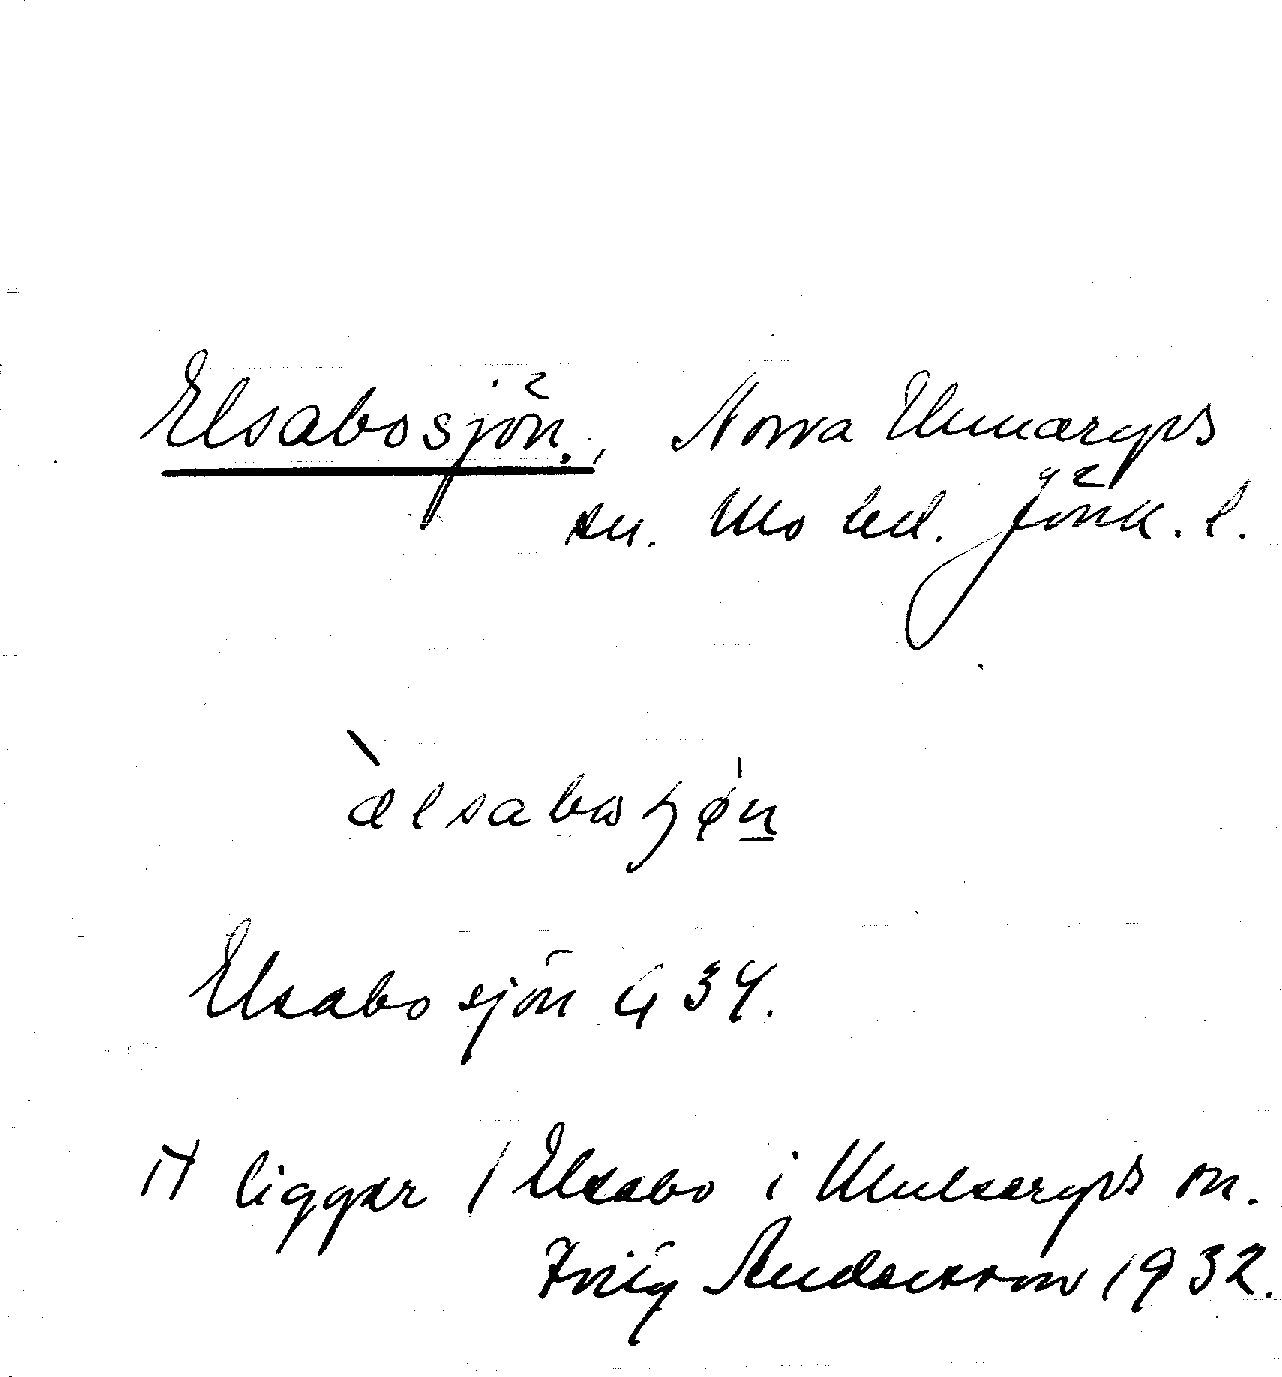 Elsabosjön., Norra Unnaryps
sn. Mo hd. Jönk. l.
ælsaboʃøn
Elsabosjön G 34.
H liggar / Elsabo i Ulvseryds sn.
Andersson 1932.